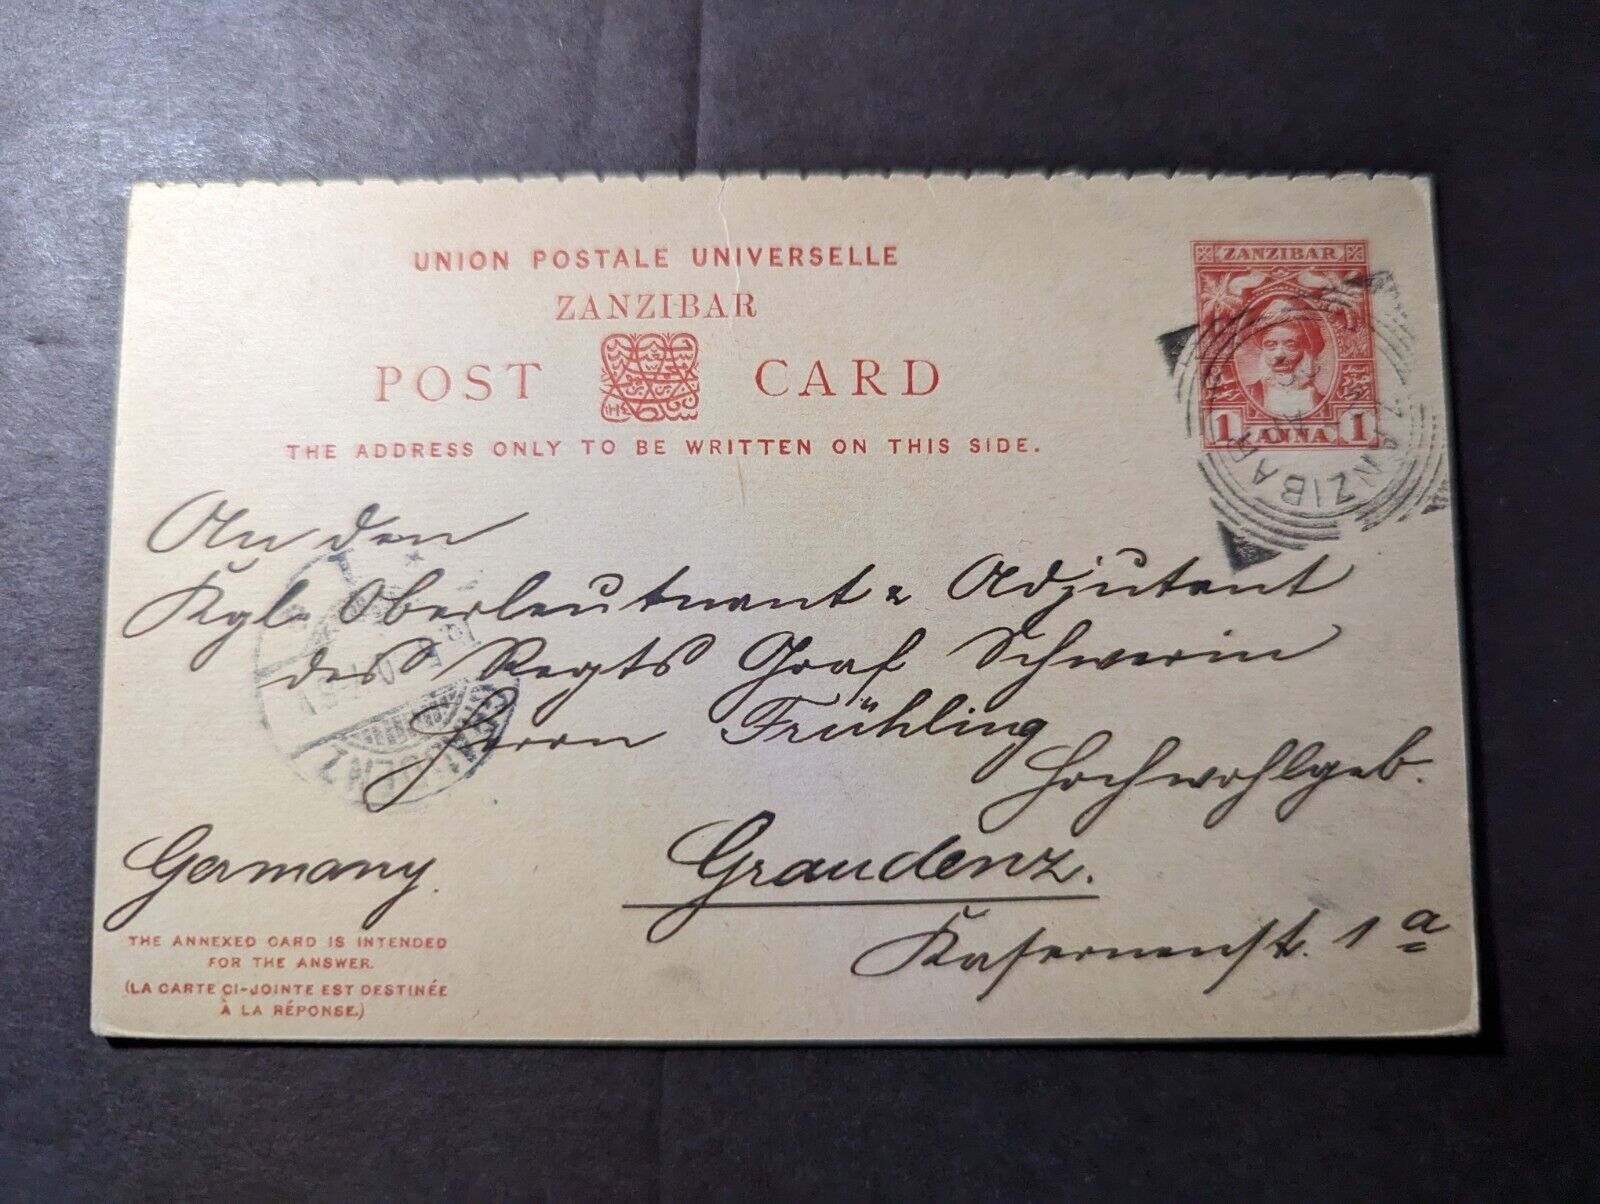 UNION POSTALE UNIVERSELLE
ZANZIBAR
POST CARD
THE ADDRESS ONLY TO BE WRITTEN ON THIS SIDE.
ZANZIBAR
1 ANNA 1
ZANZIBAR
An den
Kgl. Oberleutnant & Adjutant
des Regts Graf Schwerin
Herrn Frühling
Hochwohlgeb.
Graudenz.
Kasernenst. 1a
Germany.
GRAUDENZ
THE ANNEXED CARD IS INTENDED
FOR THE ANSWER.
(LA CARTE CI-JOINTE EST DESTINÉE
À LA RÉPONSE.)